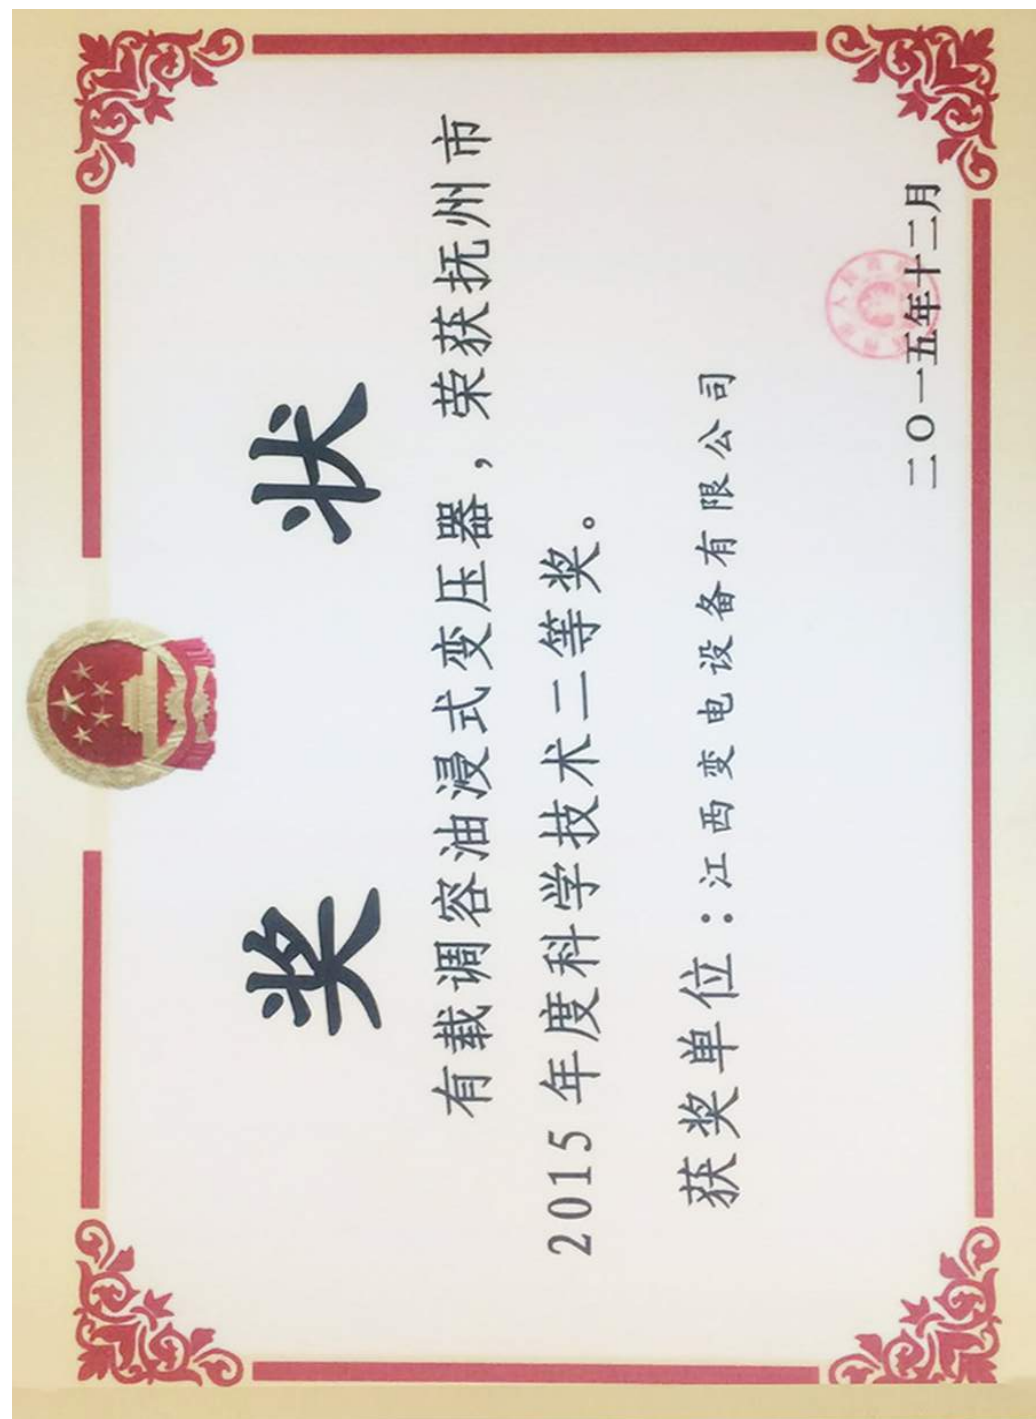 奖 状
有载调容油浸式变压器，荣获抚州市
2015 年度科学技术二等奖。
获奖单位：江西变电设备有限公司
二〇一五年十二月